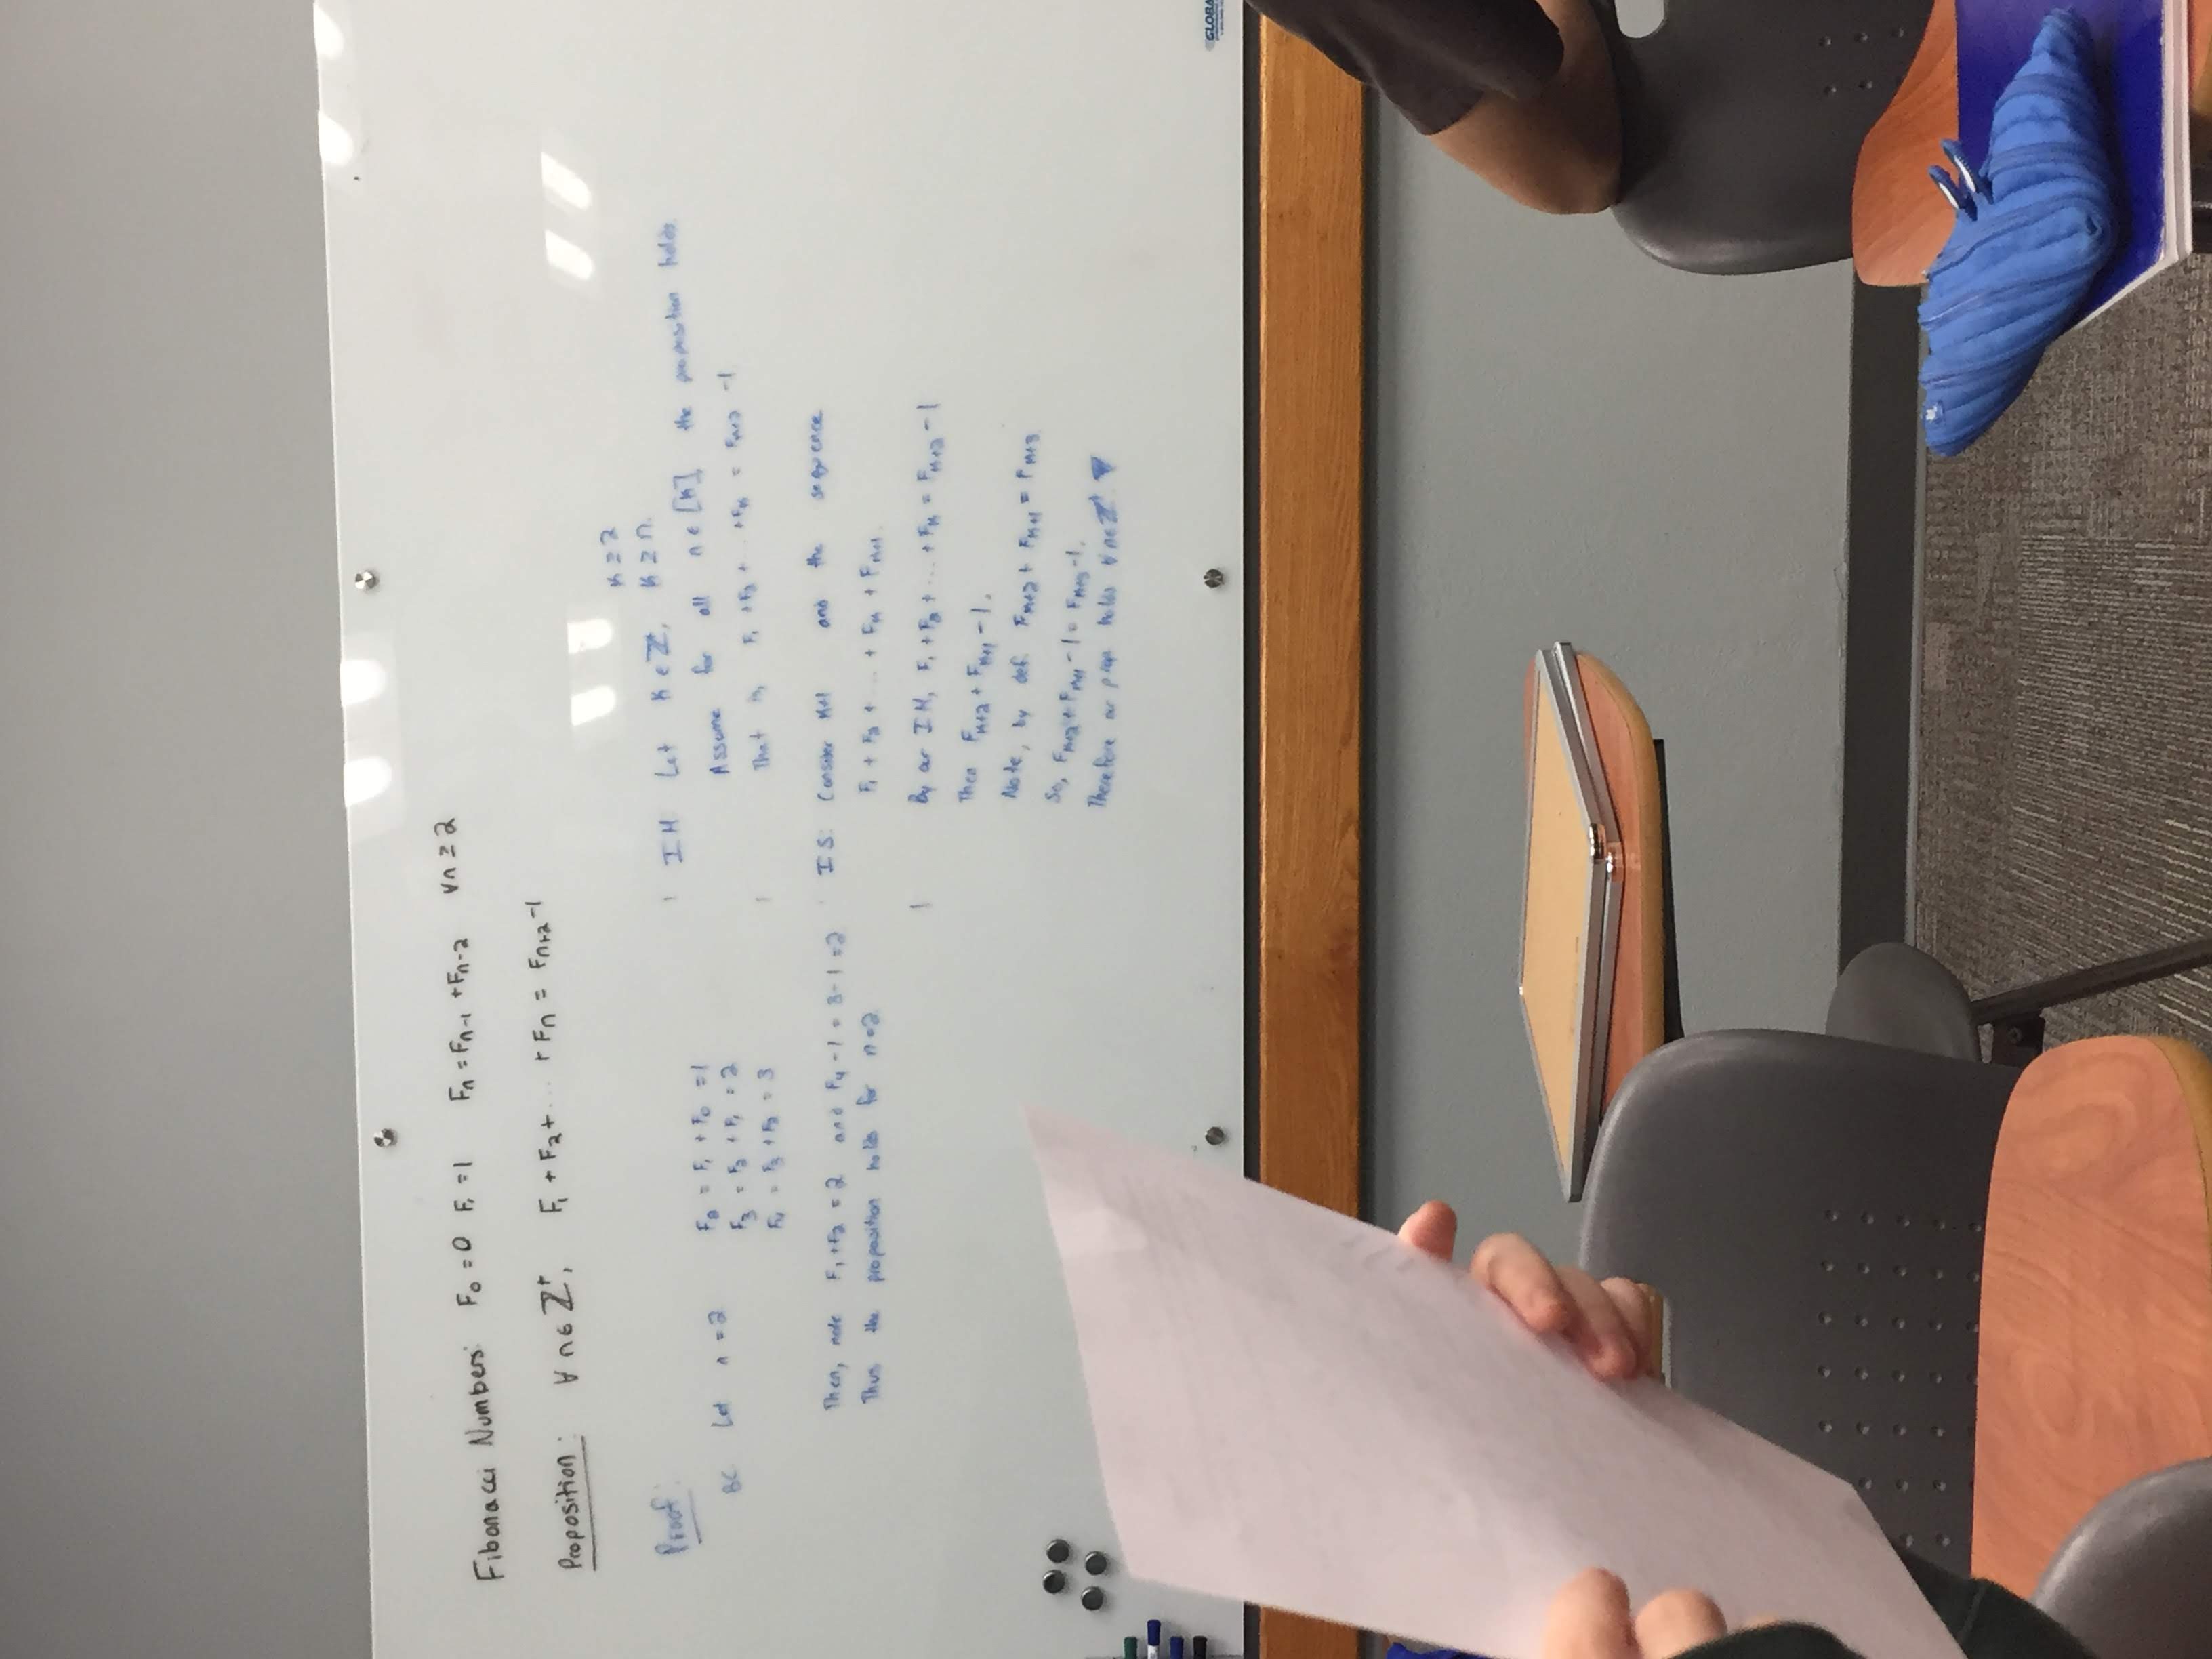 Fibonacci Numbers: F₀ = 0 F₁ = 1 Fₙ = Fₙ₋₁ + Fₙ₋₂ ∀n ≥ 2
Proposition: ∀ n ∈ ℤ⁺, F₁ + F₂ + ... + Fₙ = Fₙ₊₂ - 1
Proof:
BC Let n = 2
F₂ = F₁ + F₀ = 1
F₃ = F₂ + F₁ = 2
F₄ = F₃ + F₂ = 3
Then, note F₁ + F₂ = 2 and F₄ - 1 = 3 - 1 = 2
Thus the proposition holds for n = 2
K ≥ 2
IH Let K ∈ ℤ, K ≥ n.
Assume for all n ∈ [K], the proposition holds.
That is, F₁ + F₂ + ... + Fₖ = Fₖ₊₂ - 1
IS: Consider K+1 and the sequence
F₁ + F₂ + ... + Fₖ + Fₖ₊₁.
By our IH, F₁ + F₂ + ... + Fₖ = Fₖ₊₂ - 1
Then Fₖ₊₂ + Fₖ₊₁ - 1.
Note, by def. Fₖ₊₂ + Fₖ₊₁ = Fₖ₊₃
So, Fₖ₊₂ + Fₖ₊₁ - 1 = Fₖ₊₃ - 1.
Therefore our prop holds ∀ n ∈ ℤ⁺ ▼
GLOBA